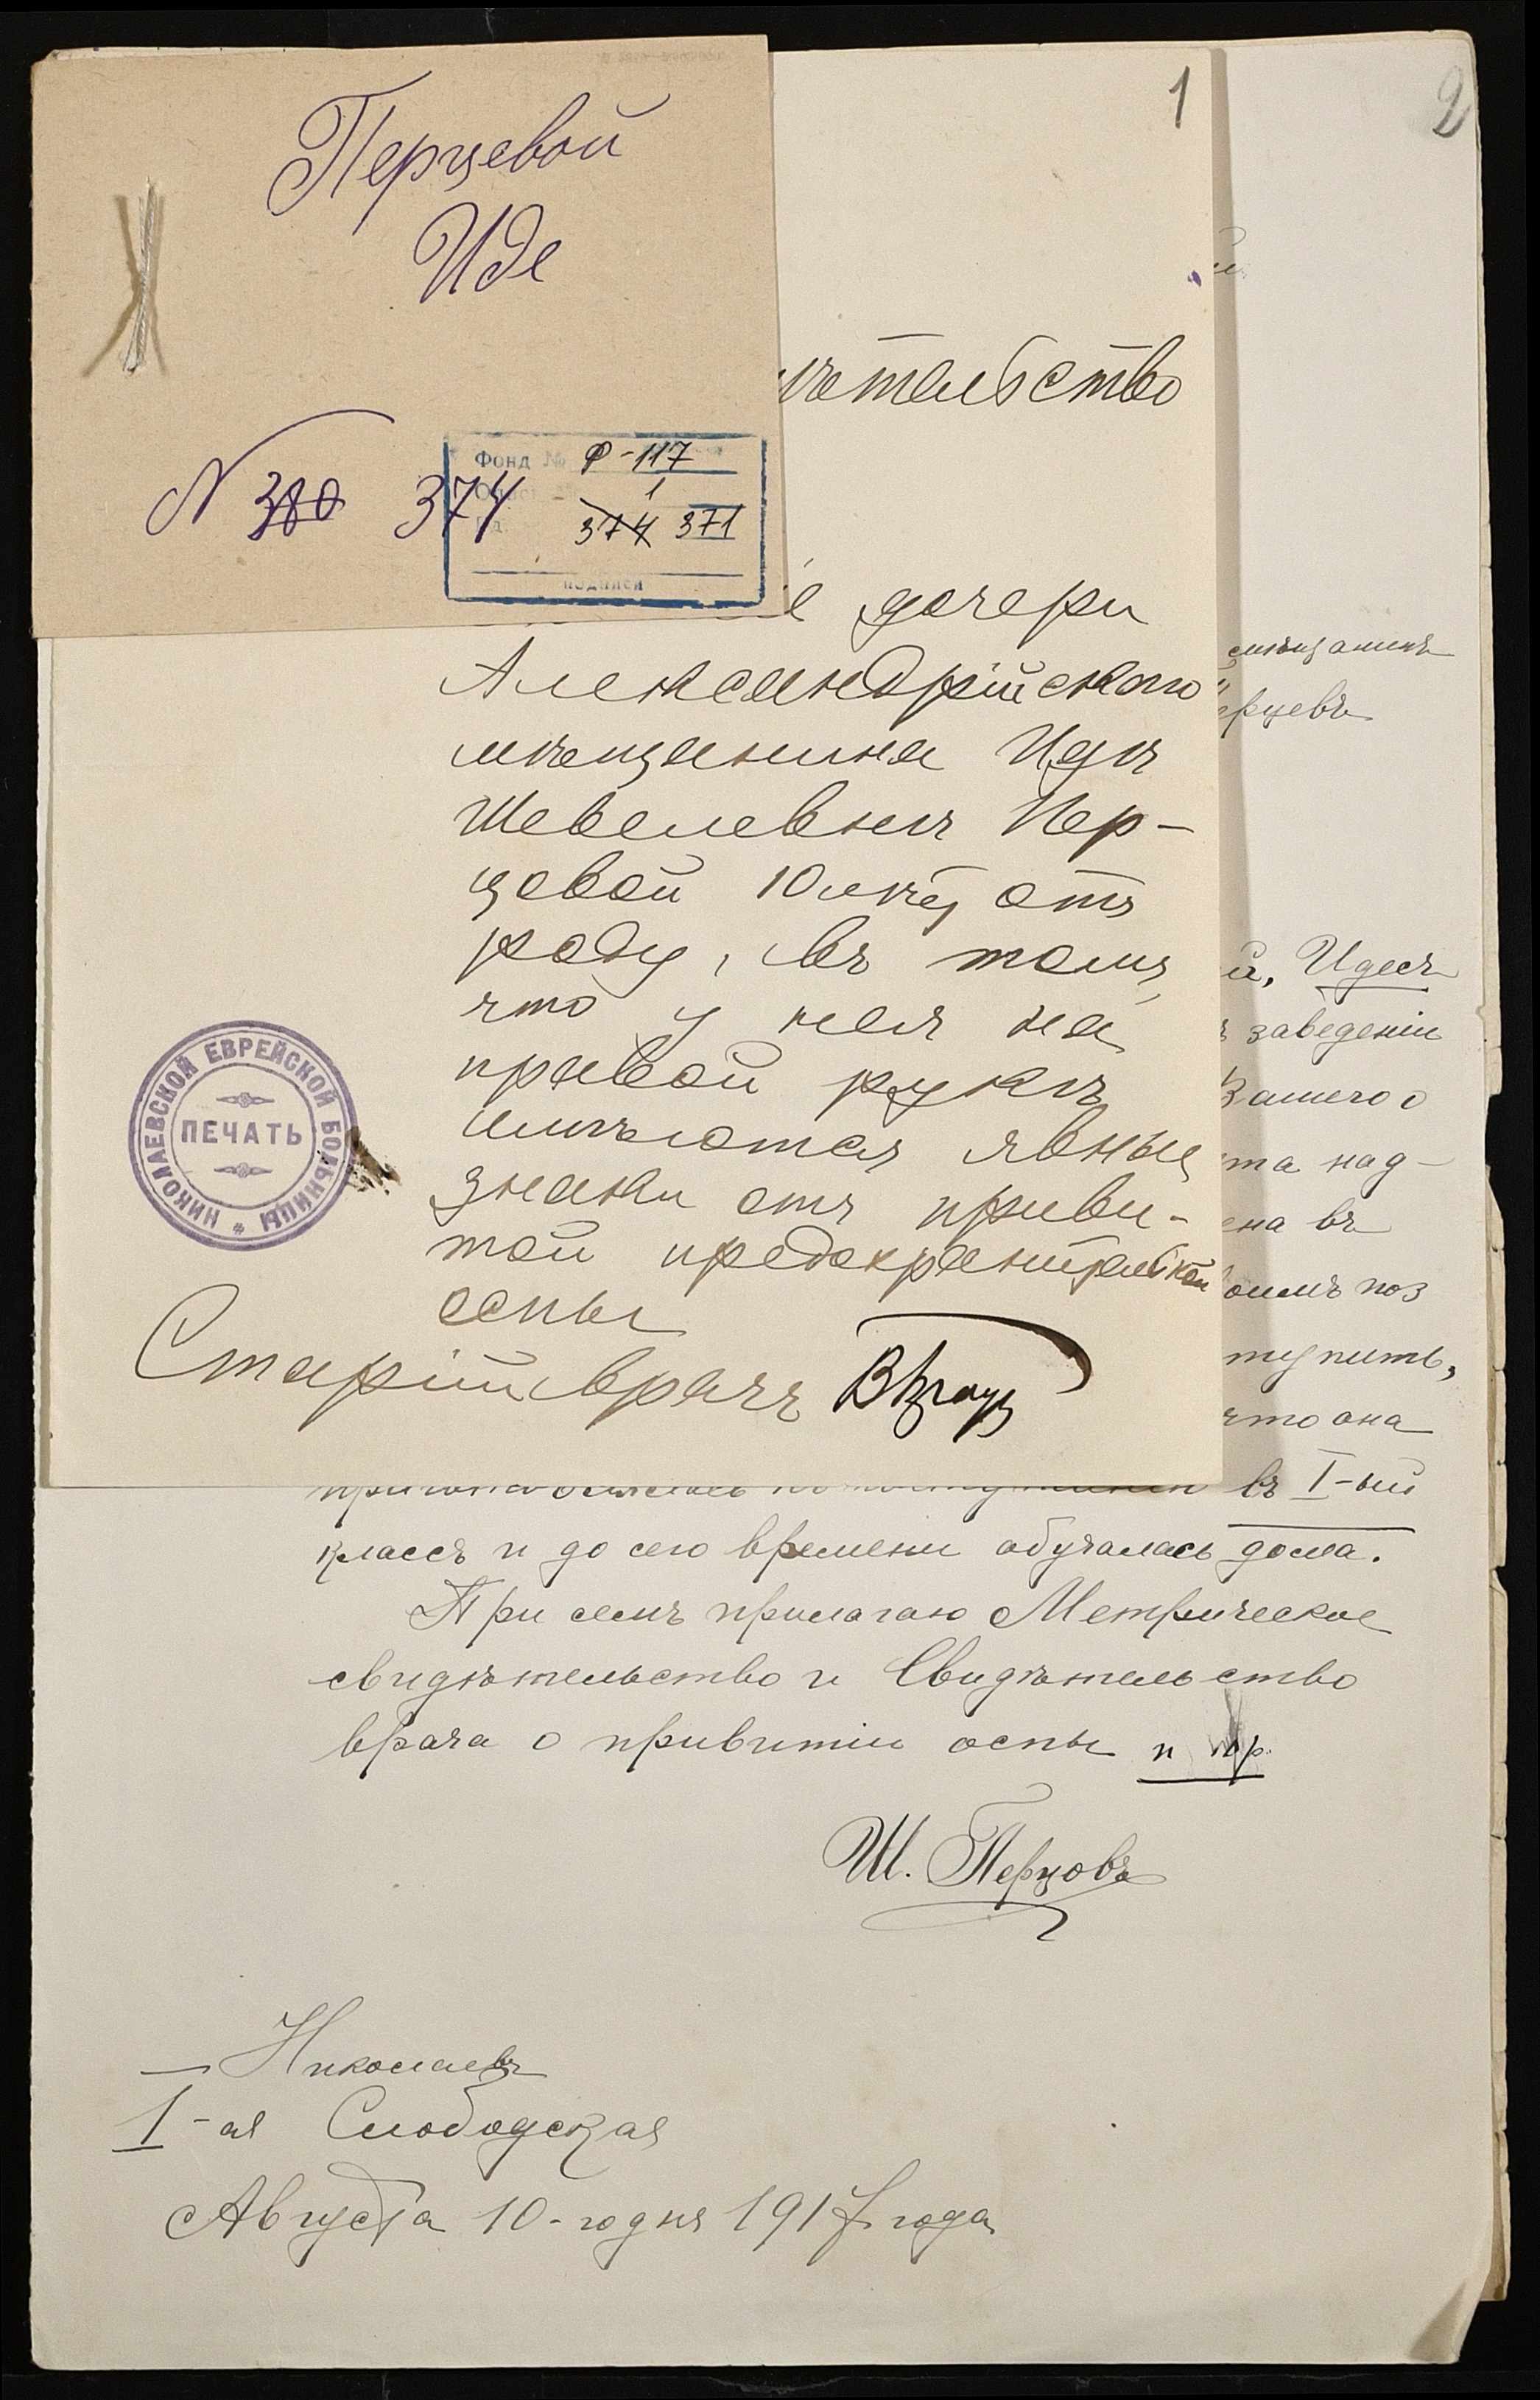 Перцевой
Иде
N 380 374
Фонд № Ф-117
1
374 371
подписи
1
2
дочери
Александрійскаго
мѣщанина Идѣ
Шевелевнѣ Пер-
цовой 10 лѣтъ отъ
роду, въ томъ
что у нея на
правой рукѣ
имѣются явные
знаки отъ приви-
той предохранительной
оспы
Старшій врачъ
НИКОЛАЕВСКОЙ ЕВРЕЙСКОЙ БОЛЬНИЦЫ
ПЕЧАТЬ
мѣщанинъ
Идесъ
заведеніи
Вашего о
над-
въ
поз
что она
въ I-ый
классъ и до сего времени обучалась дома.
При семъ прилагаю Метрическое
свидѣтельство и Свидѣтельство
врача о привитіи оспы и пр.
Ш. Перцовъ
Николаевъ
1-ая Слободская
Августа 10-го дня 1917 года